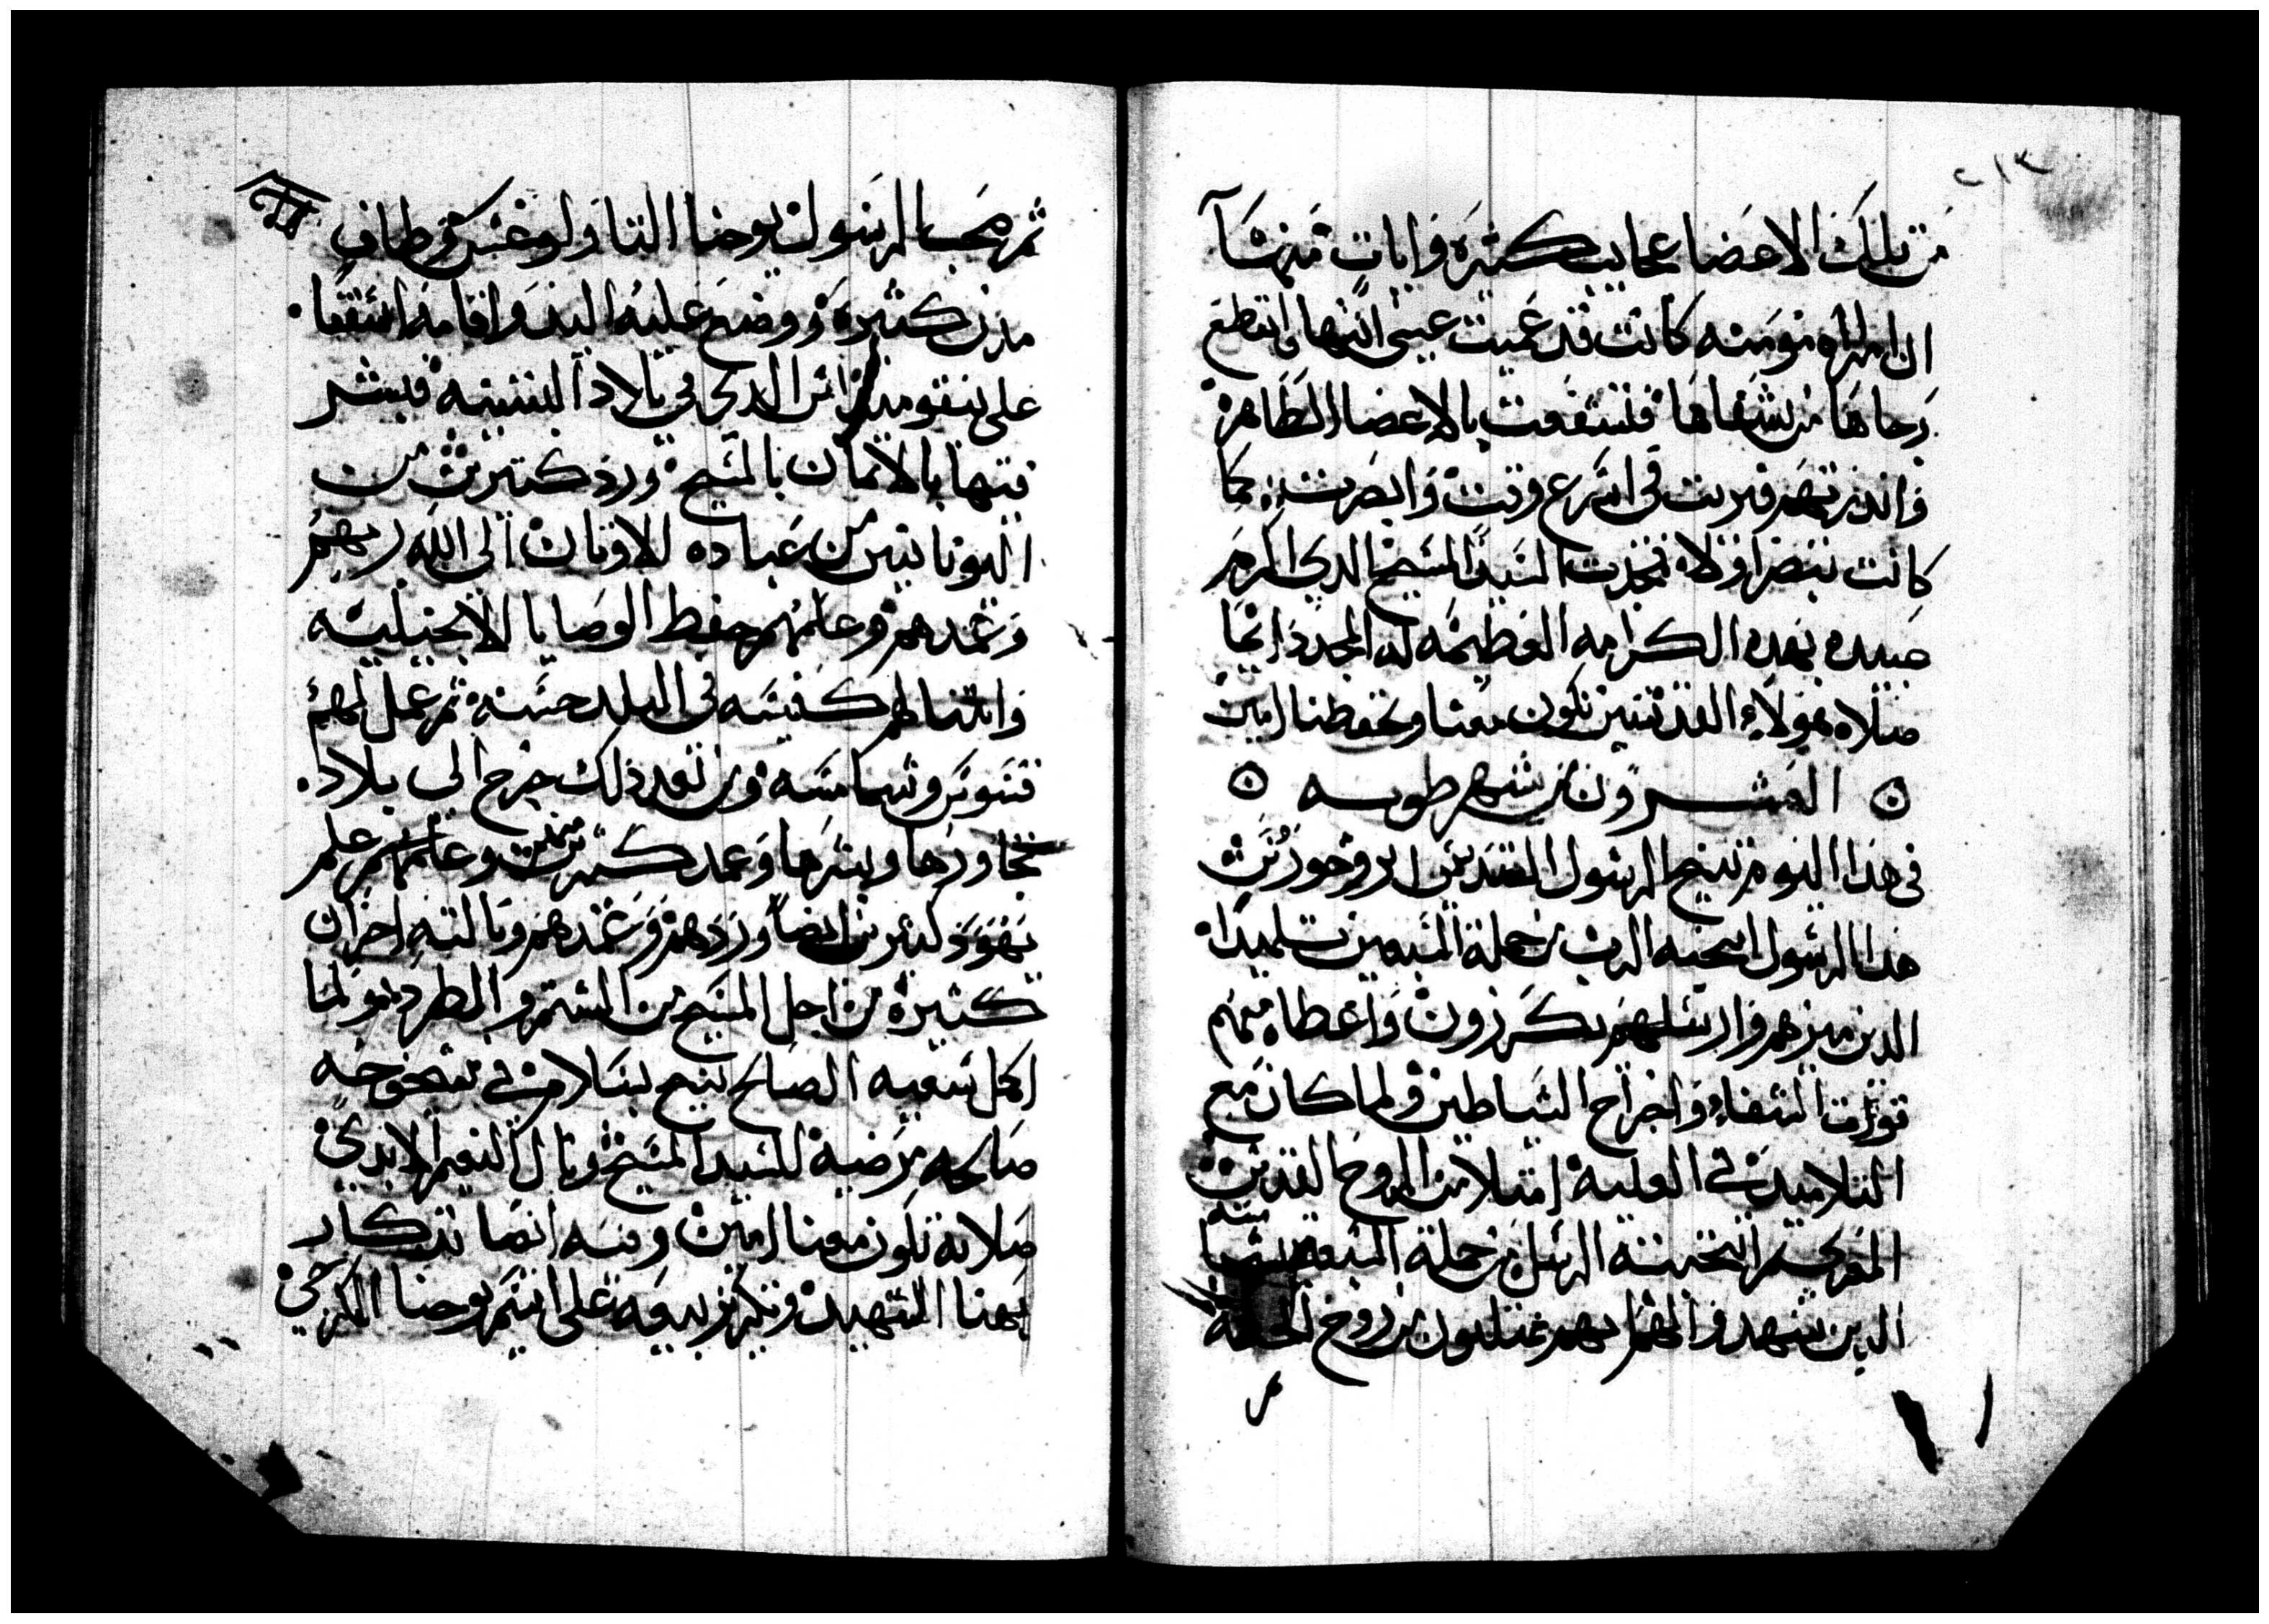 ٢١٣
من تلك الاعضا عجايب كثيره وايات منها
ان امراه مومنه كانت قد عميت عيني ابنتها وانقطع
رجاها من شفاها فتشفعت بالاعضا الطاهره
في اسرع وقت وابصرت كما
كانت تبصر اولا فمجدت السيد المسيح الدي اكرم
عبيده بهده الكرامه العظيمه له المجد دايما
صلاه هولاء القديسين تكون معنا وتحفظنا امين
العشرون من شهر طوبه
في هدا اليوم تنيح الرسول القديس ابروخورس
هدا الرسول انتخبه الرب من جملة السبعين تلميدا
الدين ميزهم وارسلهم يكرزون واعطاهم
قوة الشفاء واخراج الشياطين ولما كان مع
التلاميد في العليه امتلا من الروح القدس
المعزي ثم انتخبته الرسل من جملة السبعه
الدين شهدوا لهم انهم ممتليون من روح الحكمه
ثم صحب الرسول يوحنا التاولوغس وطاف
مدن كثيره ووضع عليه اليد واقامه اسقفا
على نيقوميديا الدي في بلاد البتينيه فبشر
فيها بالايمان بالمسيح ورد كتيرين من
اليونانيين من عباده الاوتان الى الله ربهم
وعمدهم وعلمهم حفظ الوصايا الانجيليه
وابتنا لهم كنيسه في البلد حسنه ثم عمل لهم
قسوس وشمامسه ومن بعد ذلك خرج الى بلاد
تجاورها وبشرها وعمد كثيرين منهم وعلمهم علم
يهود كثيرين ايضا وردهم وعمدهم ونالته احزان
كثيره من اجل المسيح من الشتم والطرد ولما
اكمل سعيه الصالح تنيح بسلام في شيخوخه
صالحه مرضيه للسيد المسيح ونال النعيم الابدي
صلاته تكون معنا امين وفيه ايضا تدكار
بهنا الشهيد وتكريز بيعه على اسم يوحنا